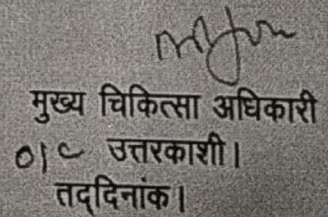 मुख्य चिकित्सा अधिकारी
उत्तरकाशी।
तद्दिनांक।